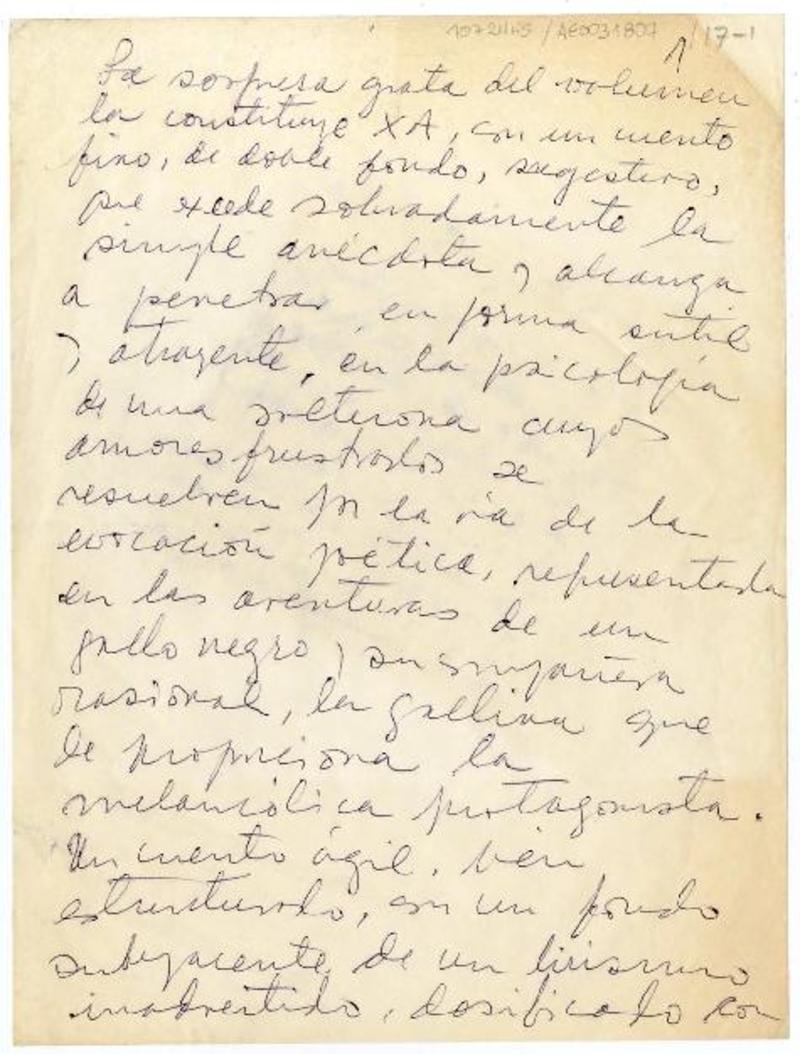 10721145 / AE0031807 / 17-1
1
La sorpresa grata del volumen
la constituye XA, con un cuento
fino, de doble fondo, sugestivo,
que excede sobradamente la
simple anécdota y alcanza
a penetrar, en forma sutil
y atrayente, en la psicología
de una solterona cuyos
amores frustrados se
resuelven por la vía de la
evocación poética, representada
en las aventuras de un
gallo negro y su compañera
ocasional, la gallina que
le proporciona la
melancólica protagonista.
Un cuento ágil, bien
estructurado, con un fondo
subyacente de un lirismo
inadvertido, dosificado con